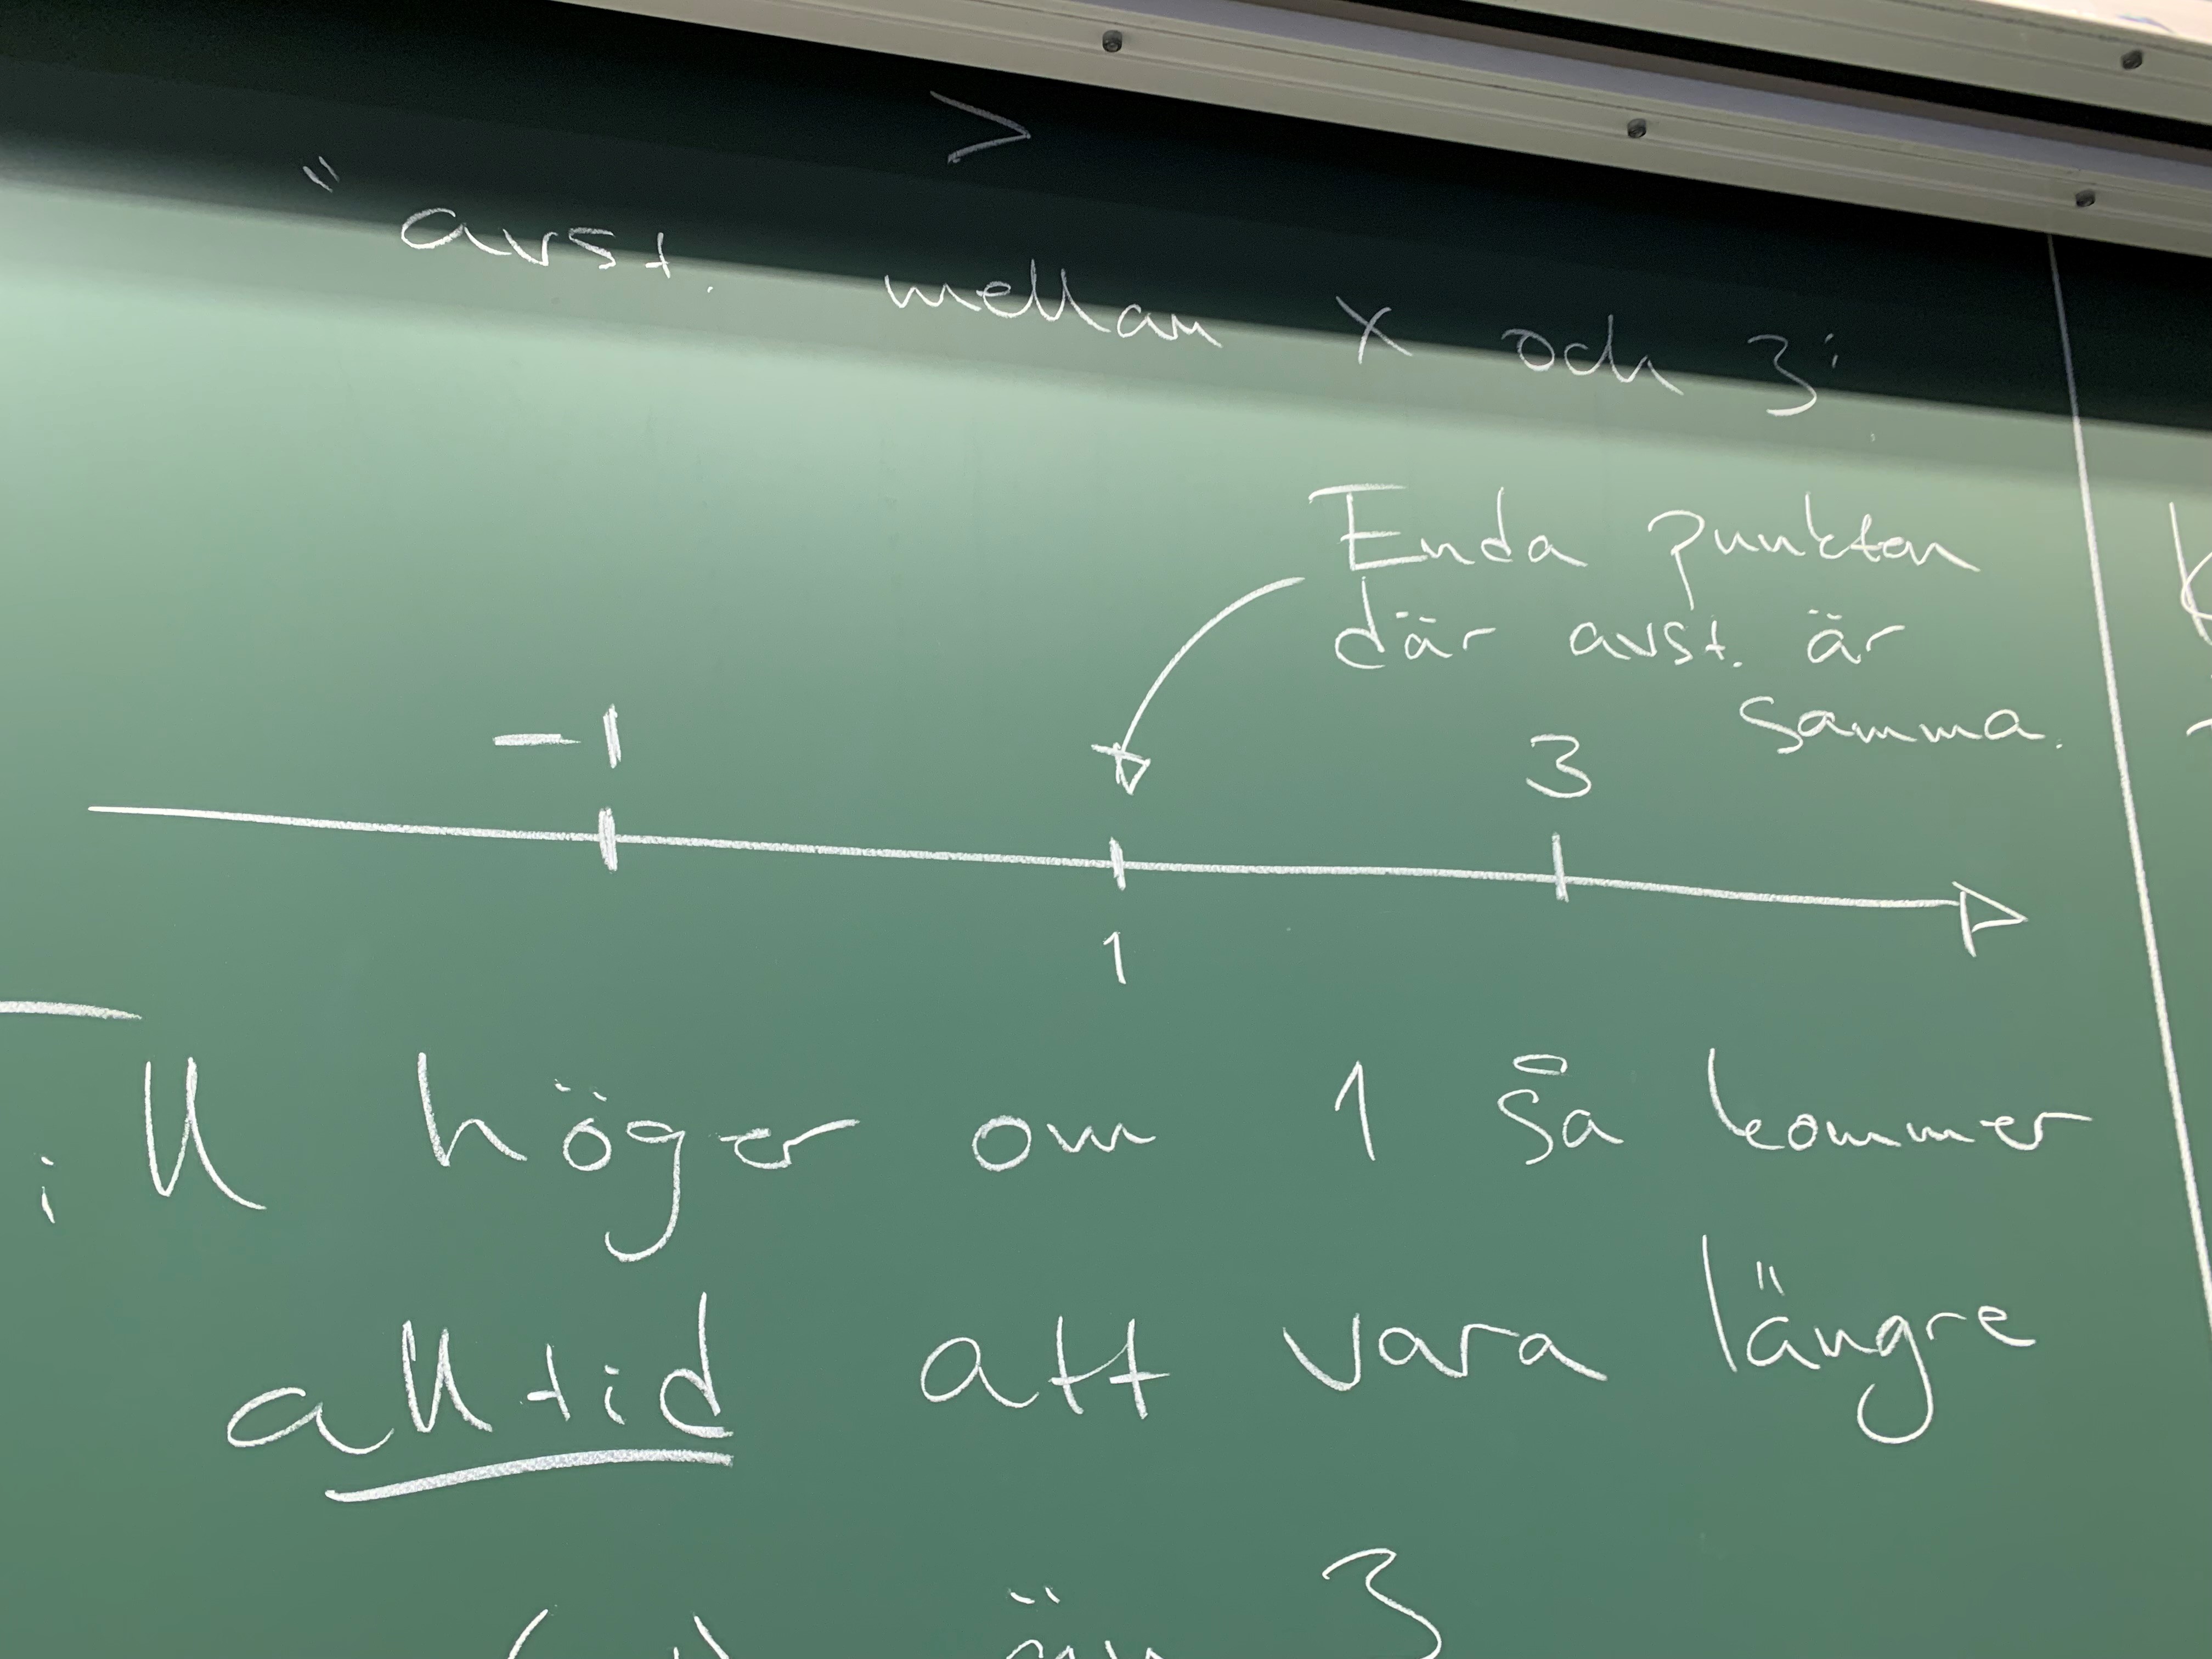 >
"avst. mellan x och 3".
Enda punkten
där avst. är
samma.
-1
3
1
till höger om 1 så kommer
alltid att vara längre
än 3